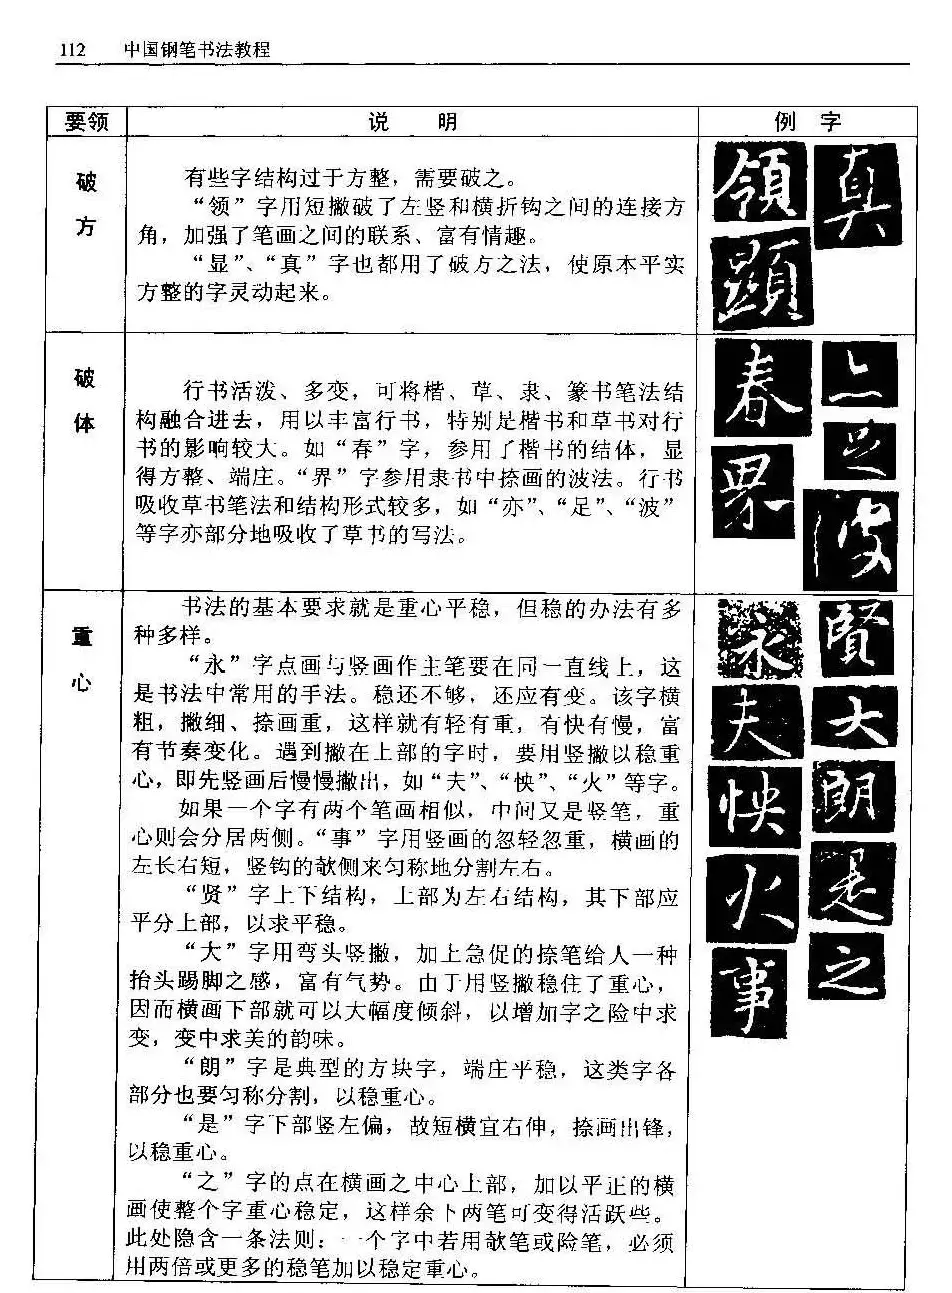 112 中国钢笔书法教程
要领
说 明
例 字
破
方
有些字结构过于方整，需要破之。
“领”字用短撇破了左竖和横折钩之间的连接方
角，加强了笔画之间的联系、富有情趣。
“显”、“真”字也都用了破方之法，使原本平实
方整的字灵动起来。
領
真
顯
破
体
行书活泼、多变，可将楷、草、隶、篆书笔法结
构融合进去，用以丰富行书，特别是楷书和草书对行
书的影响较大。如“春”字，参用了楷书的结体，显
得方整、端庄。“界”字参用隶书中捺画的波法。行书
吸收草书笔法和结构形式较多，如“亦”、“足”、“波”
等字亦部分地吸收了草书的写法。
春
亦
足
界
波
重
心
书法的基本要求就是重心平稳，但稳的办法有多
种多样。
“永”字点画与竖画作主笔要在同一直线上，这
是书法中常用的手法。稳还不够，还应有变。该字横
粗，撇细、捺画重，这样就有轻有重，有快有慢，富
有节奏变化。遇到撇在上部的字时，要用竖撇以稳重
心，即先竖画后慢慢撇出，如“夫”、“怏”、“火”等字。
如果一个字有两个笔画相似，中间又是竖笔，重
心则会分居两侧。“事”字用竖画的忽轻忽重，横画的
左长右短，竖钩的欹侧来匀称地分割左右。
“贤”字上下结构，上部为左右结构，其下部应
平分上部，以求平稳。
“大”字用弯头竖撇，加上急促的捺笔给人一种
抬头踢脚之感，富有气势。由于用竖撇稳住了重心，
因而横画下部就可以大幅度倾斜，以增加字之险中求
变，变中求美的韵味。
“朗”字是典型的方块字，端庄平稳，这类字各
部分也要匀称分割，以稳重心。
“是”字下部竖左偏，故短横宜右伸，捺画出锋，
以稳重心。
“之”字的点在横画之中心上部，加以平正的横
画使整个字重心稳定，这样余下两笔可变得活跃些。
此处隐含一条法则：一个字中若用欹笔或险笔，必须
用两倍或更多的稳笔加以稳定重心。
永
賢
夫
大
怏
朗
火
是
事
之